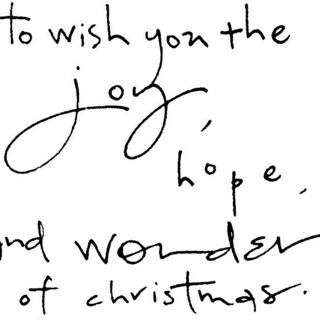 to wish you the
joy,
hope,
and wonder
of christmas.